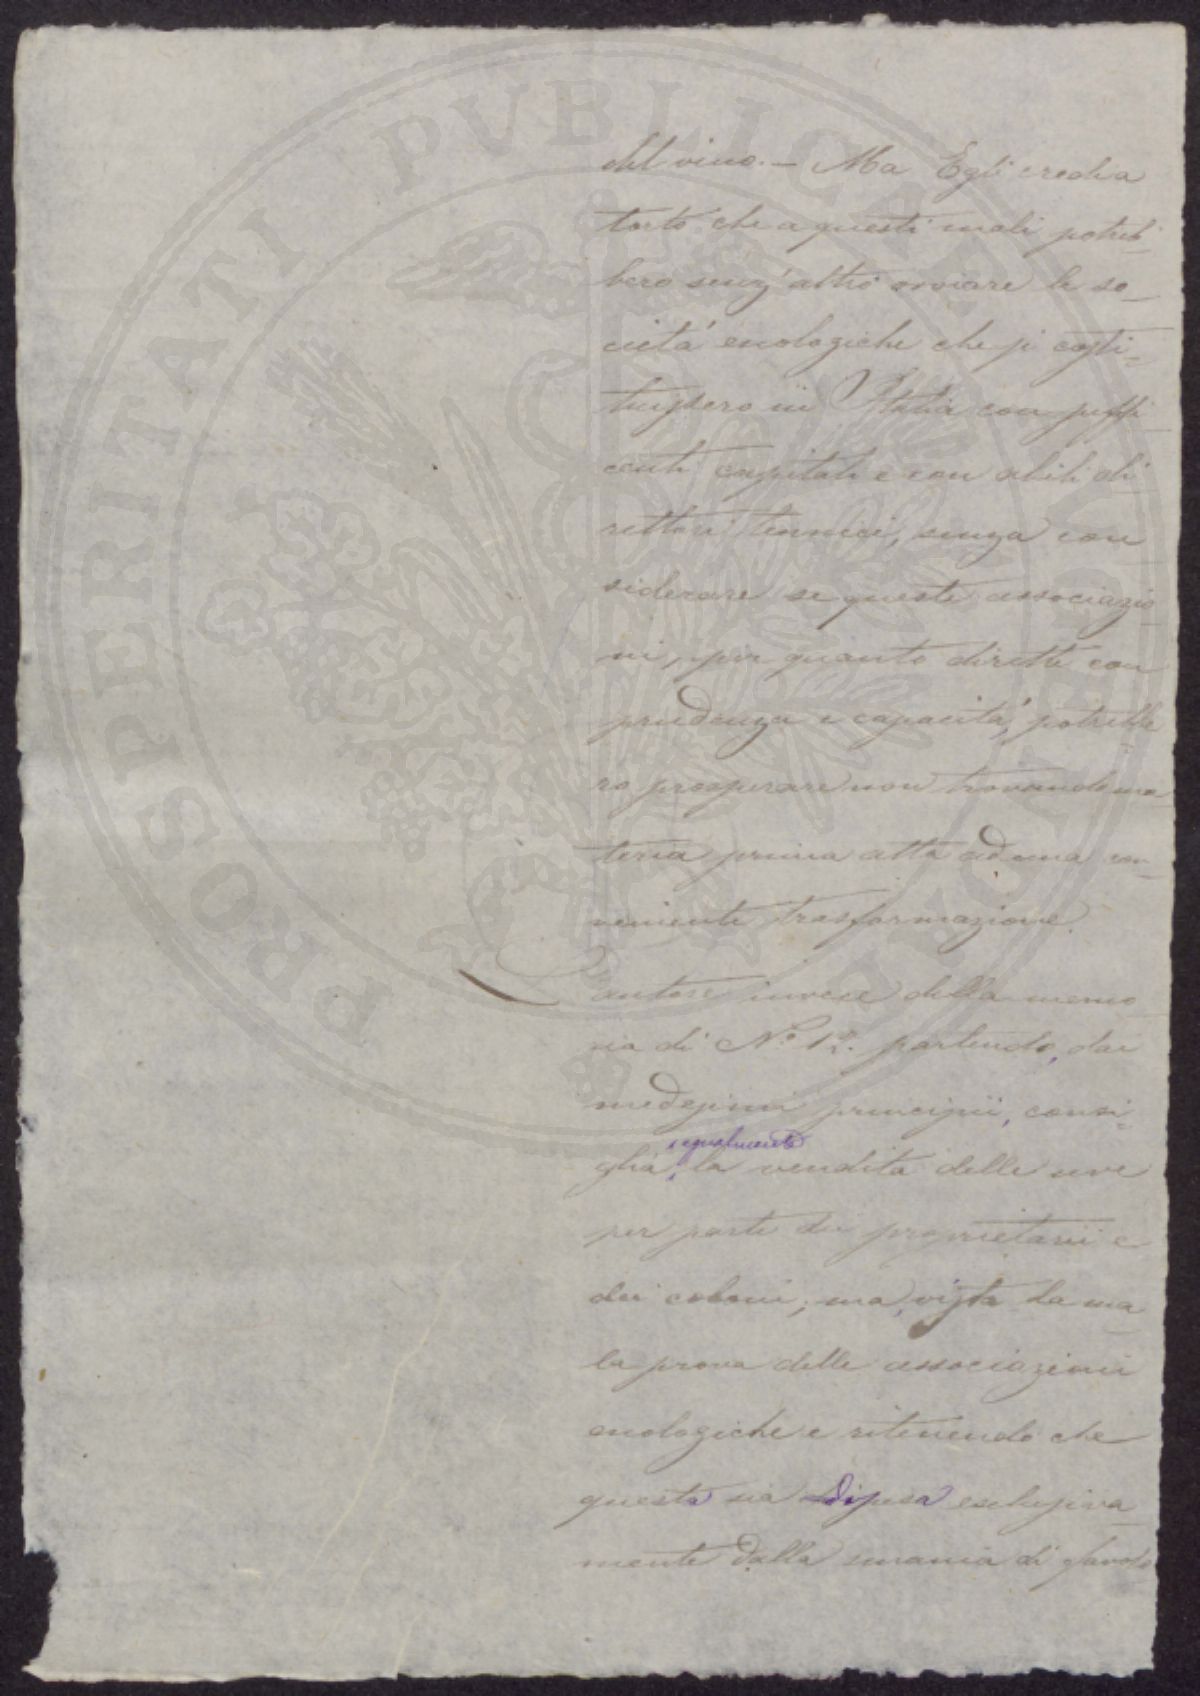 PROSPERITATI PUBLICAE AUGENDAE
del vino. – Ma Egli crede a
torto che a questi mali potreb-
bero senz'altro ovviare le so-
cietà enologiche che si costi-
tuissero in Italia con suffi
centi capitali e con abili di-
rettori tecnici, senza con
siderare se queste associazio
ni, per quanto dirette con
prudenza e capacità, potrebbe
ro prosperare non trovando ma-
teria prima atta ad una con-
veniente trasformazione.
autore invece della memo
ria di N.° 12. partendo, dai
medesimi principii, consi-
egualmente
glia, la vendita delle uve
per parte dei proprietarii e
dei coloni; ma, vista la ma
la prova delle associazioni
enologiche e ritenendo che
questa sia difesa esclusiva
mente dalla smania di favol